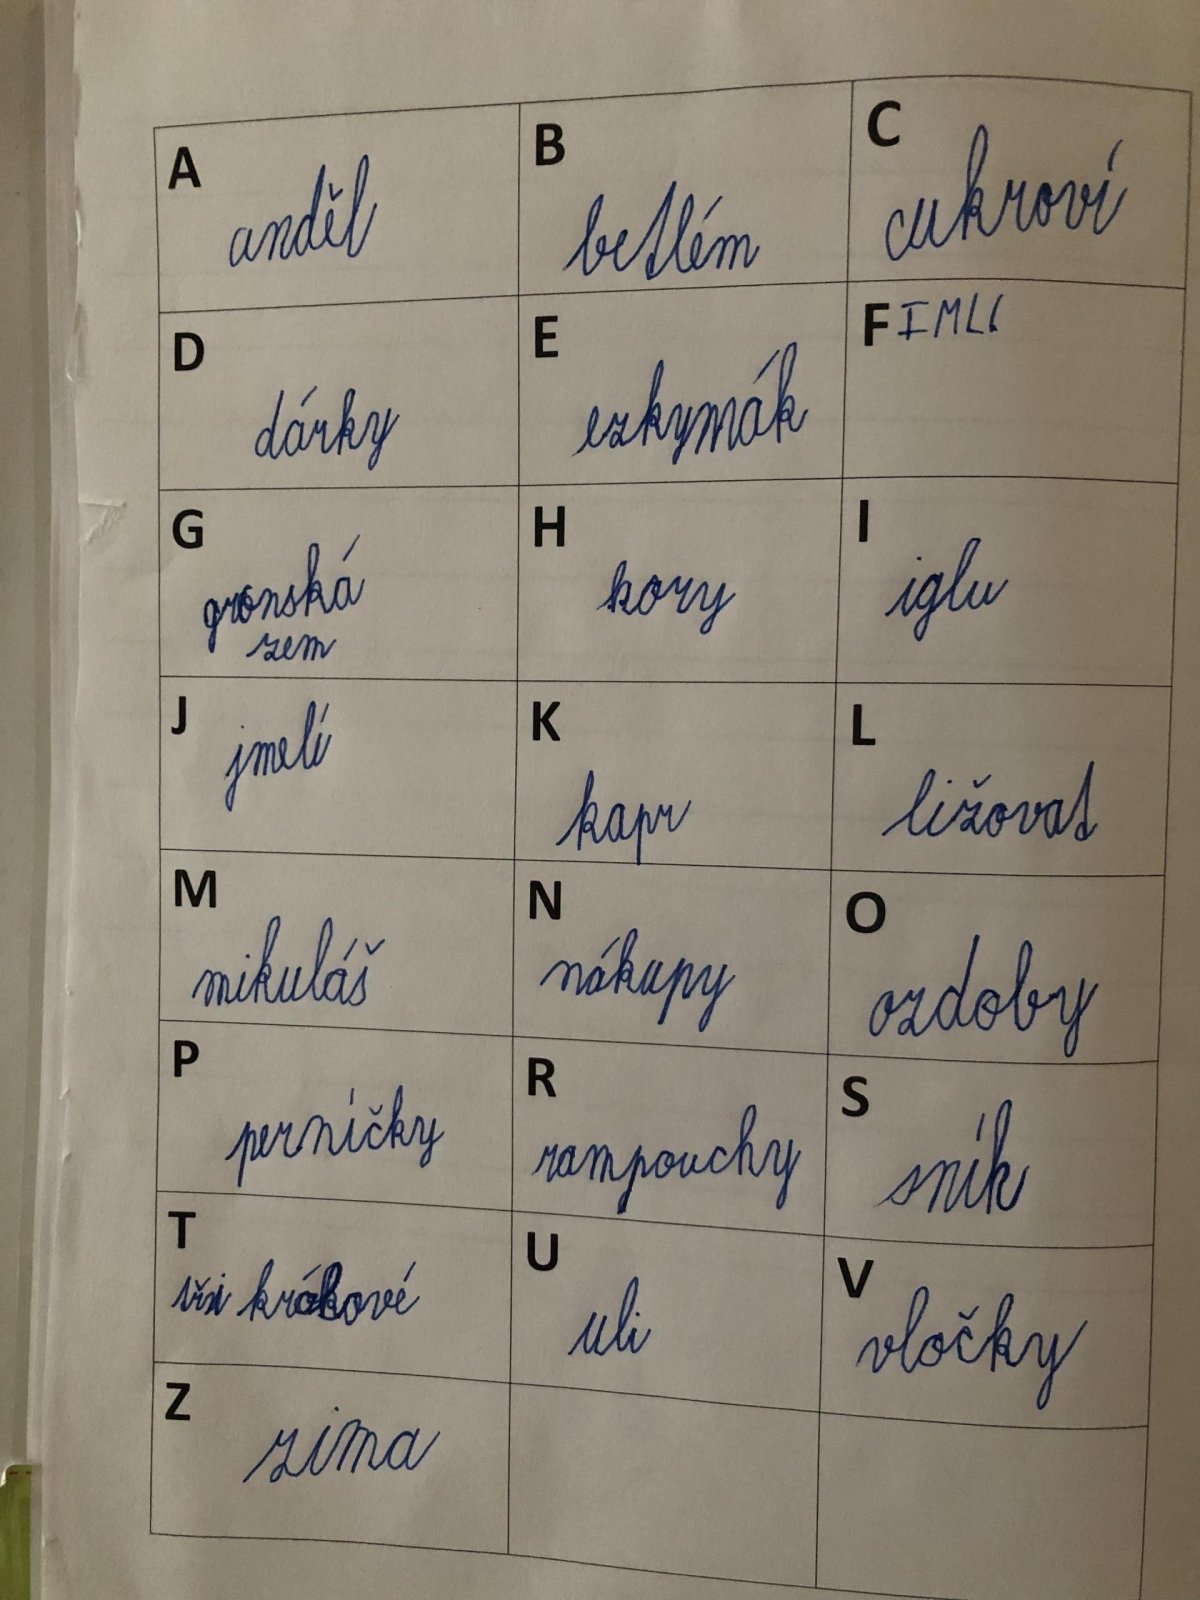 A
anděl
B
betlém
C
cukroví
D
dárky
E
ezkymák
F IMLI
G
gronská
zem
H
hory
I
iglu
J
jmelí
K
kapr
L
ližovat
M
mikuláš
N
nákupy
O
ozdoby
P
perníčky
R
rampouchy
S
sník
T
tři králové
U
uli
V
vločky
Z
zima